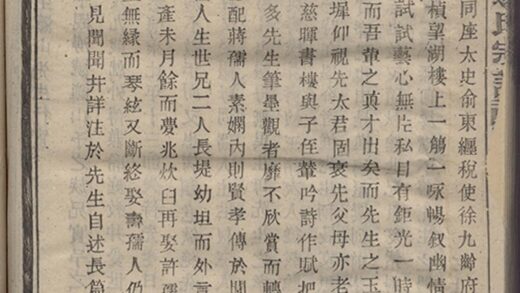 氏宗譜
同座太史俞東纒稅使徐九齡府
楨望湖樓上一觴一咏暢叙幽情
試試藝心無片私目有鉅光一時
而吾輩之真才出矣而先生之玉
墀仰視先太君固衰先父母亦老
慈暉書樓與子侄輩吟詩作賦把
多先生筆墨觀者靡不欣賞而轉
配蔣孺人素嫻內則賢孝傳於閨
人生世兄二人長堤幼坦而外言
產未月餘而夢兆炊臼再娶許孺
無緣而琴絃又斷終娶壽孺人仍
見聞聞井詳注於先生自述長篇